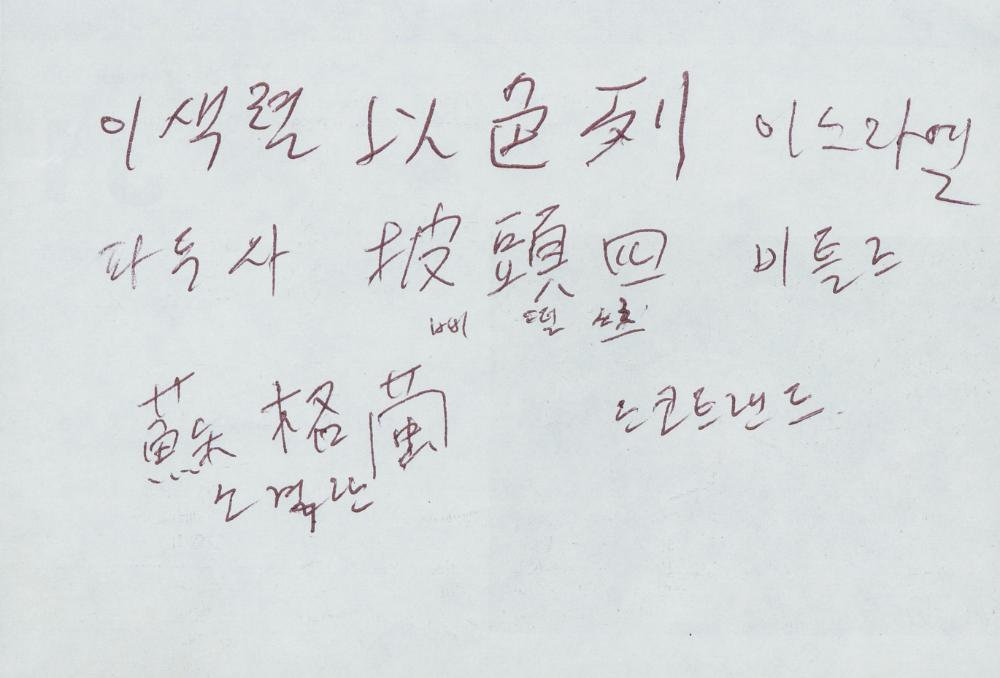 이색렬 以色列 이스라엘
파두사 披頭四 비틀즈
삐 떨 쓰
蘇格蘭 스코트랜드.
소격란